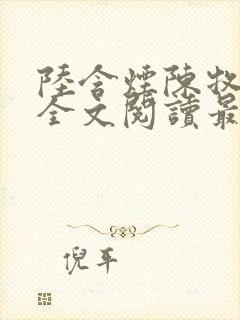 陸含煙陳牧
全文閱讀最
倪平